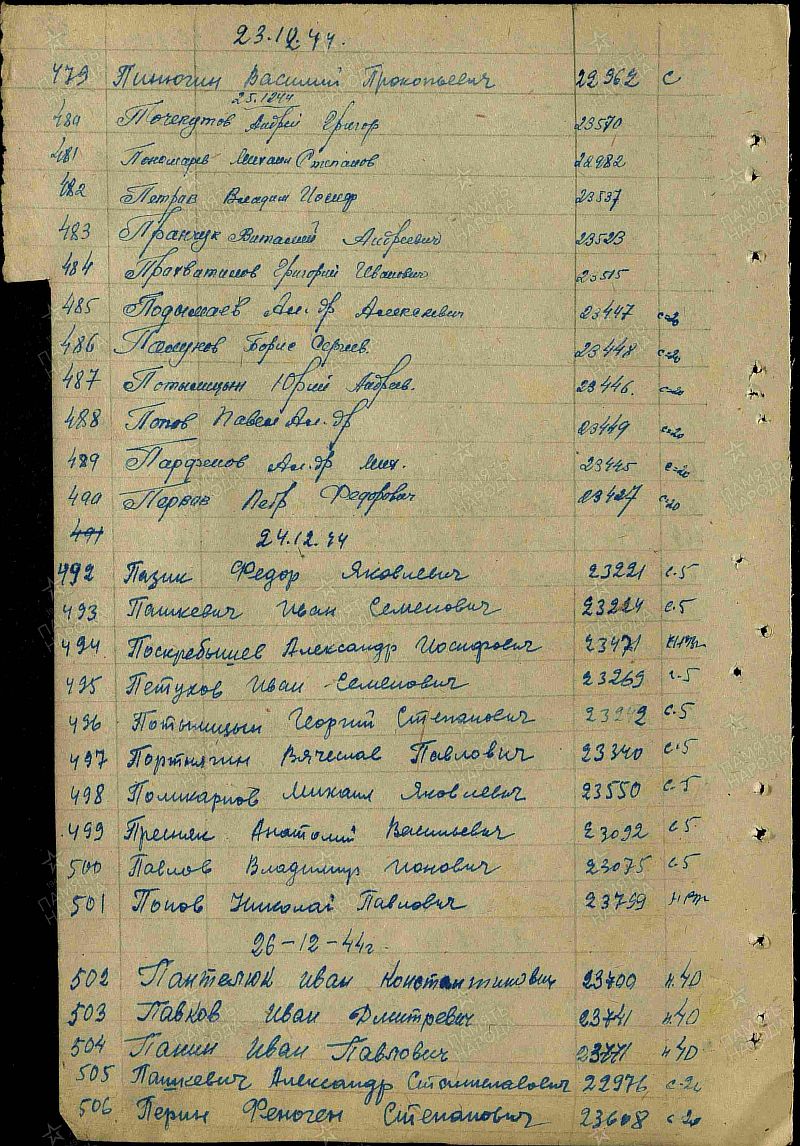 23.12.44.
479 Пинюгин Василий Прокопьевич 22962 с
25.12.44
480 Почекутов Андрей Григор 23570
481 Пономарев Михаил Степанов 22982
482 Петров Владим Иосиф 23537
483 Пранчук Виталий Андреевич 23523
484 Прохватилов Григорий Иванович 23515
485 Подымаев Ал.др Алексеевич 23447 с-20
486 Борис Сергеев. 23448 с-20
487 Потылицын Юрий Андреев. 23446. с-20
488 Попов Павел Ал.др 23449 с-20
489 Парфенов Ал.др Мих. 23445 с-20
490 Перков Петр Федорович 23427 с-20
491 24.12.44
492 Пазик Федор Яковлевич 23221 с.5
493 Пашкевич Иван Семенович 23224 с.5
494 Поскребышев Александр Иосифович 23471
495 Петухов Иван Семенович 23269 с.5
496 Потылицын Георгий Степанович 23242 с.5
497 Портнягин Вячеслав Павлович 23340 с.5
498 Поликарпов Михаил Яковлевич 23550 с.5
499 Пресняк Анатолий Васильевич 23092 с.5
500 Павлов Владимир Ионович 23075 с.5
501 Попов Николай Павлович 23799
26-12-44г
502 Пантелюк Иван Константинович 23700 н.40
503 Павков Иван Дмитревич 23741 н.40
504 Панин Иван Павлович 23771 н40
505 Пашкевич Александр Станиславович 22976 с-20
506 Перин Феноген Степанович 23608 с-20